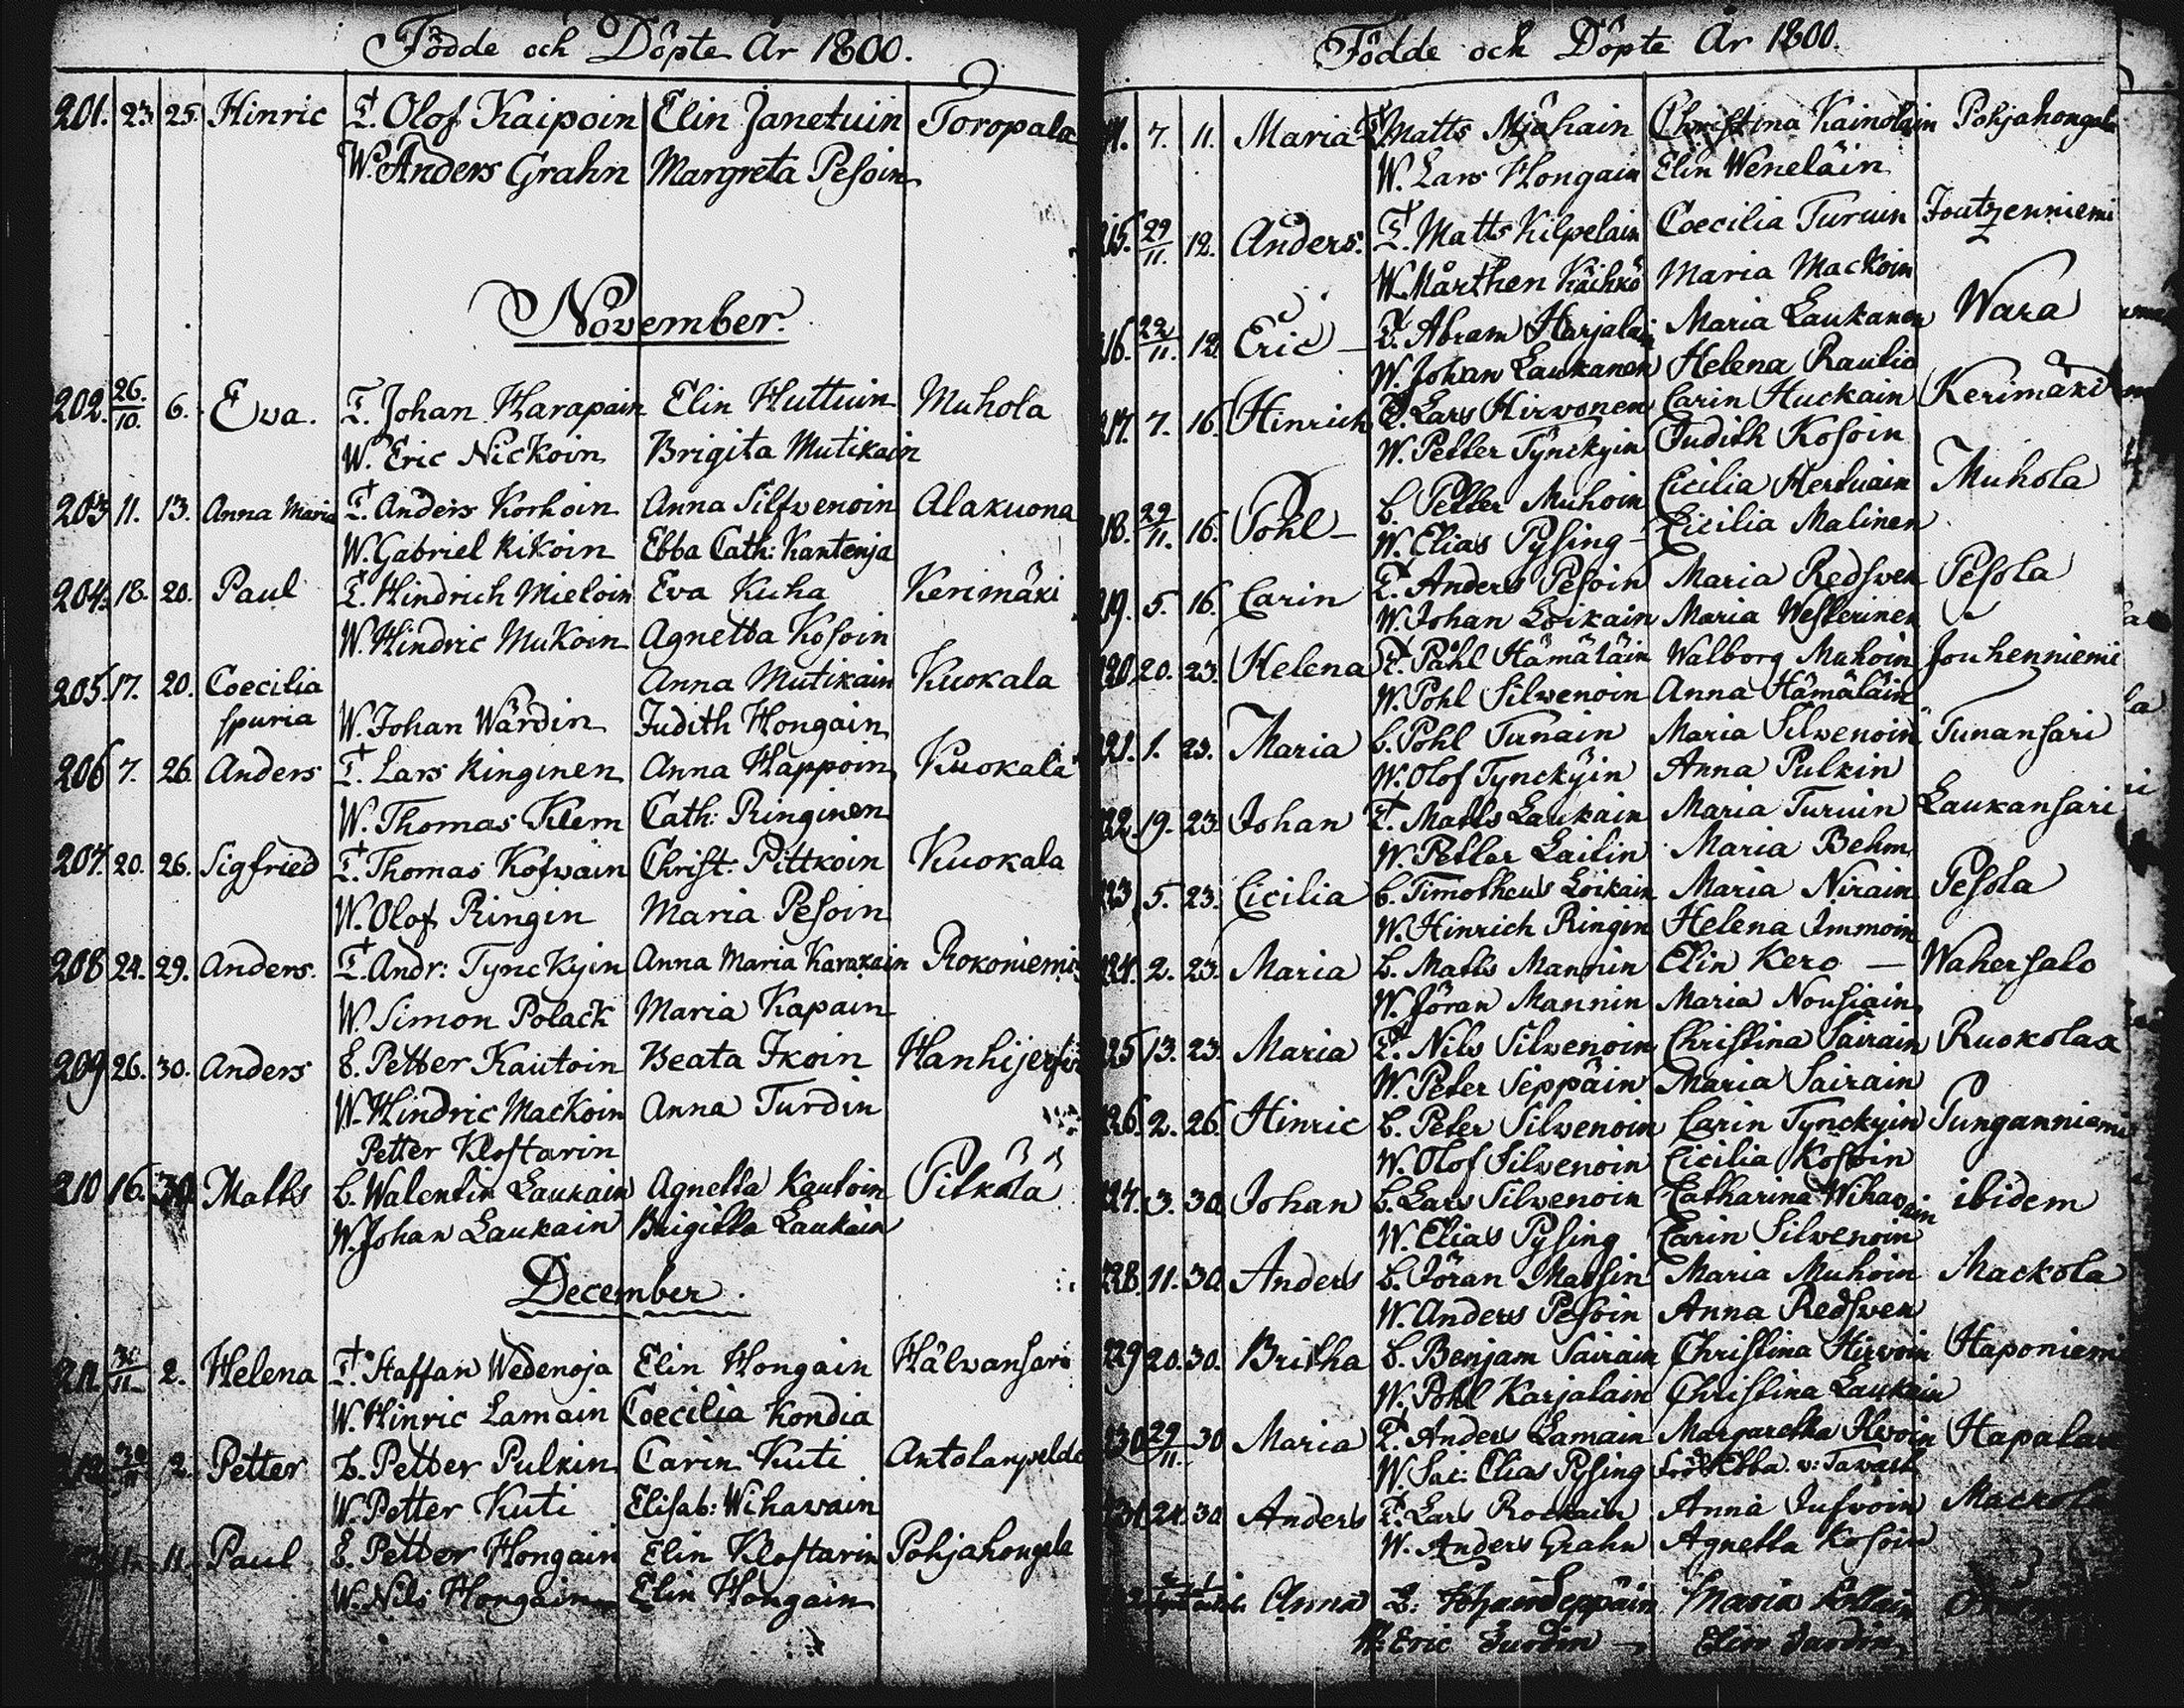 Födde och Döpte År 1800.
201. 23. 25. Hinric T. Olof Kaipoin Elin Janetuin Toropala
W. Anders Grahn Margreta Pesoin
November.
202. 26./10. 6. Eva. T. Johan Harapain Elin Huttuin Muhola
W. Eric Nickoin Brigita Mutikain
203 11. 13. Anna Maria T. Anders Korhoin Anna Silfvenoin Alakuona
W. Gabriel Kikoin Ebba Cath: Kantenja
204. 18. 20. Paul T. Hindrich Mieloin Eva Kuha Kerimäki
W. Hindric Mukoin Agnetta Kosoin
205. 17. 20. Coecilia Anna Mutikain Kuokala
spuria W. Johan Wärdin Judith Hongain
206 7. 26. Anders T. Lars Ringinen Anna Happoin Kuokala
W. Thomas Klem Cath: Ringinen
207. 20. 26. Sigfried T. Thomas Kosvain Christ: Pittkoin Kuokala
W. Olof Ringin Maria Pesoin
208 24. 29. Anders. T. Andr: Tynckyin Anna Maria Karakain Rokoniemi
W. Simon Polack Maria Kapain
209 26. 30. Anders B. Petter Kautoin Beata Ikoin
W. Hindric Mackoin Anna Turdin
Petter Klostarin
210 16. 30. Matts B. Walentin Laukain Agnetta Kautoin Pitkälä
W. Johan Laukain Brigitta Laukain
December.
211. 30/11. 2. Helena T. Staffan Wedenoja Elin Hongain Hälvansari
W. Hinric Lamain Coecilia Kondia
212 30/11 2. Petter B. Petter Pulkin Carin Kuti
W. Petter Kuti Elisab: Wihavain
11. Paul B. Petter Hongain Elin Klostarin Pohjahongala
W. Nils Hongain Elin Hongain
Födde och Döpte År 1800.
7. 11. Maria T. Matts Mjähain Christina Kainolain Pohjahongala
W. Lars Hongain Elin Weneläin
215. 29/11. 12. Anders. T. Matts Kilpelain Coecilia Turuin Joutzenniemi
W. Mårthen Käihkö Maria Mackoin
16. 22/11. 12. Eric T. Abram Harjalain Maria Laukanen Wara
W. Johan Laukanen Helena Raulio
217. 7. 16. Hinrich T. Lars Hirvonen Carin Huckain Kerimäki
W. Petter Tynckyin Judith Kosoin
218. 29/11. 16. Pohl B. Petter Muhoin Cicilia Hertuain Muhola
W. Elias Pysing Cicilia Malinen
219. 5. 16. Carin T. Anders Pesoin Maria Redsven Pesola
W. Johan Loikain Maria Westerinen
220. 20. 23. Helena T. Påhl Hämäläin Walborg Muhoin Jouhenniemi
W. Pohl Silvenoin Anna Hämäläin
221. 1. 23. Maria B. Pohl Tunain Maria Silvenoin Tunansari
W. Olof Tynckyin Anna Pulkin
222. 19. 23. Johan T. Matts Laukain Maria Turuin Laukansari
W. Petter Laitin Maria Behm
223 5. 23. Cicilia B. Timotheus Loikain Maria Nirain Pesola
W. Hinrich Ringin Helena Immoin
224. 2. 23. Maria B. Matts Mannin Elin Kero Wahersalo
W. Jöran Mannin Maria Nousiain
225 13. 23. Maria T. Nils Silvenoin Christina Sairain Ruokolax
W. Peter Seppäin Maria Sairain
226. 2. 26. Hinric B. Peter Silvenoin Carin Tynckyin Punganniemi
W. Olof Silvenoin Cicilia Kosoin
227. 3. 30. Johan B. Lars Silvenoin Catharina Wihavain ibidem
W. Elias Pysing Carin Silvenoin
228. 11. 30. Anders B. Jöran Massin Maria Muhoin Mackola
W. Anders Pesoin Anna Redsven
229 20. 30. Britha B. Benjam Sairain Christina Hirvoin Haponiemi
W. Pohl Karjalain Christina Laukain
230 29/11. 30 Maria T. Anders Lamain Margaretha
W. Sac: Elias Pysing Ebba v: Tavast
24. 30 Anders T. Lars Rockain Anna Mackola
W. Anders Grahn Agnetta Kosoin
Anna B. Johan Seppäin Maria
W. Eric Turdin Elin Turdin